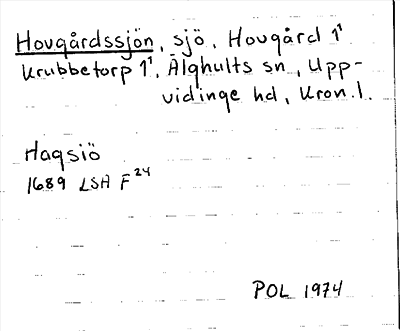 Hovgårdssjön, sjö, Hovgård 1¹
Krubbetorp 1¹, Älghults sn, Upp-
vidinge hd, Kron. l.
Hagsiö
1689 LSA F²⁴
POL 1974